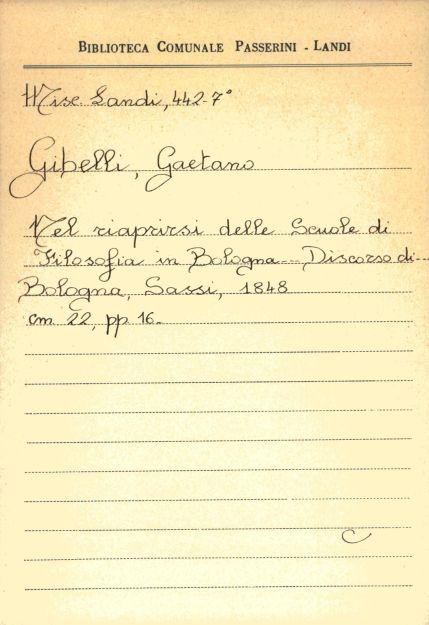 BIBLIOTECA COMUNALE PASSERINI - LANDI
Misc. Landi, 442-7°
Gibelli, Gaetano
Nel riaprirsi delle Scuole di
Filosofia in Bologna --- Discorso di --
Bologna, Sassi, 1848
cm 22, pp 16.
C